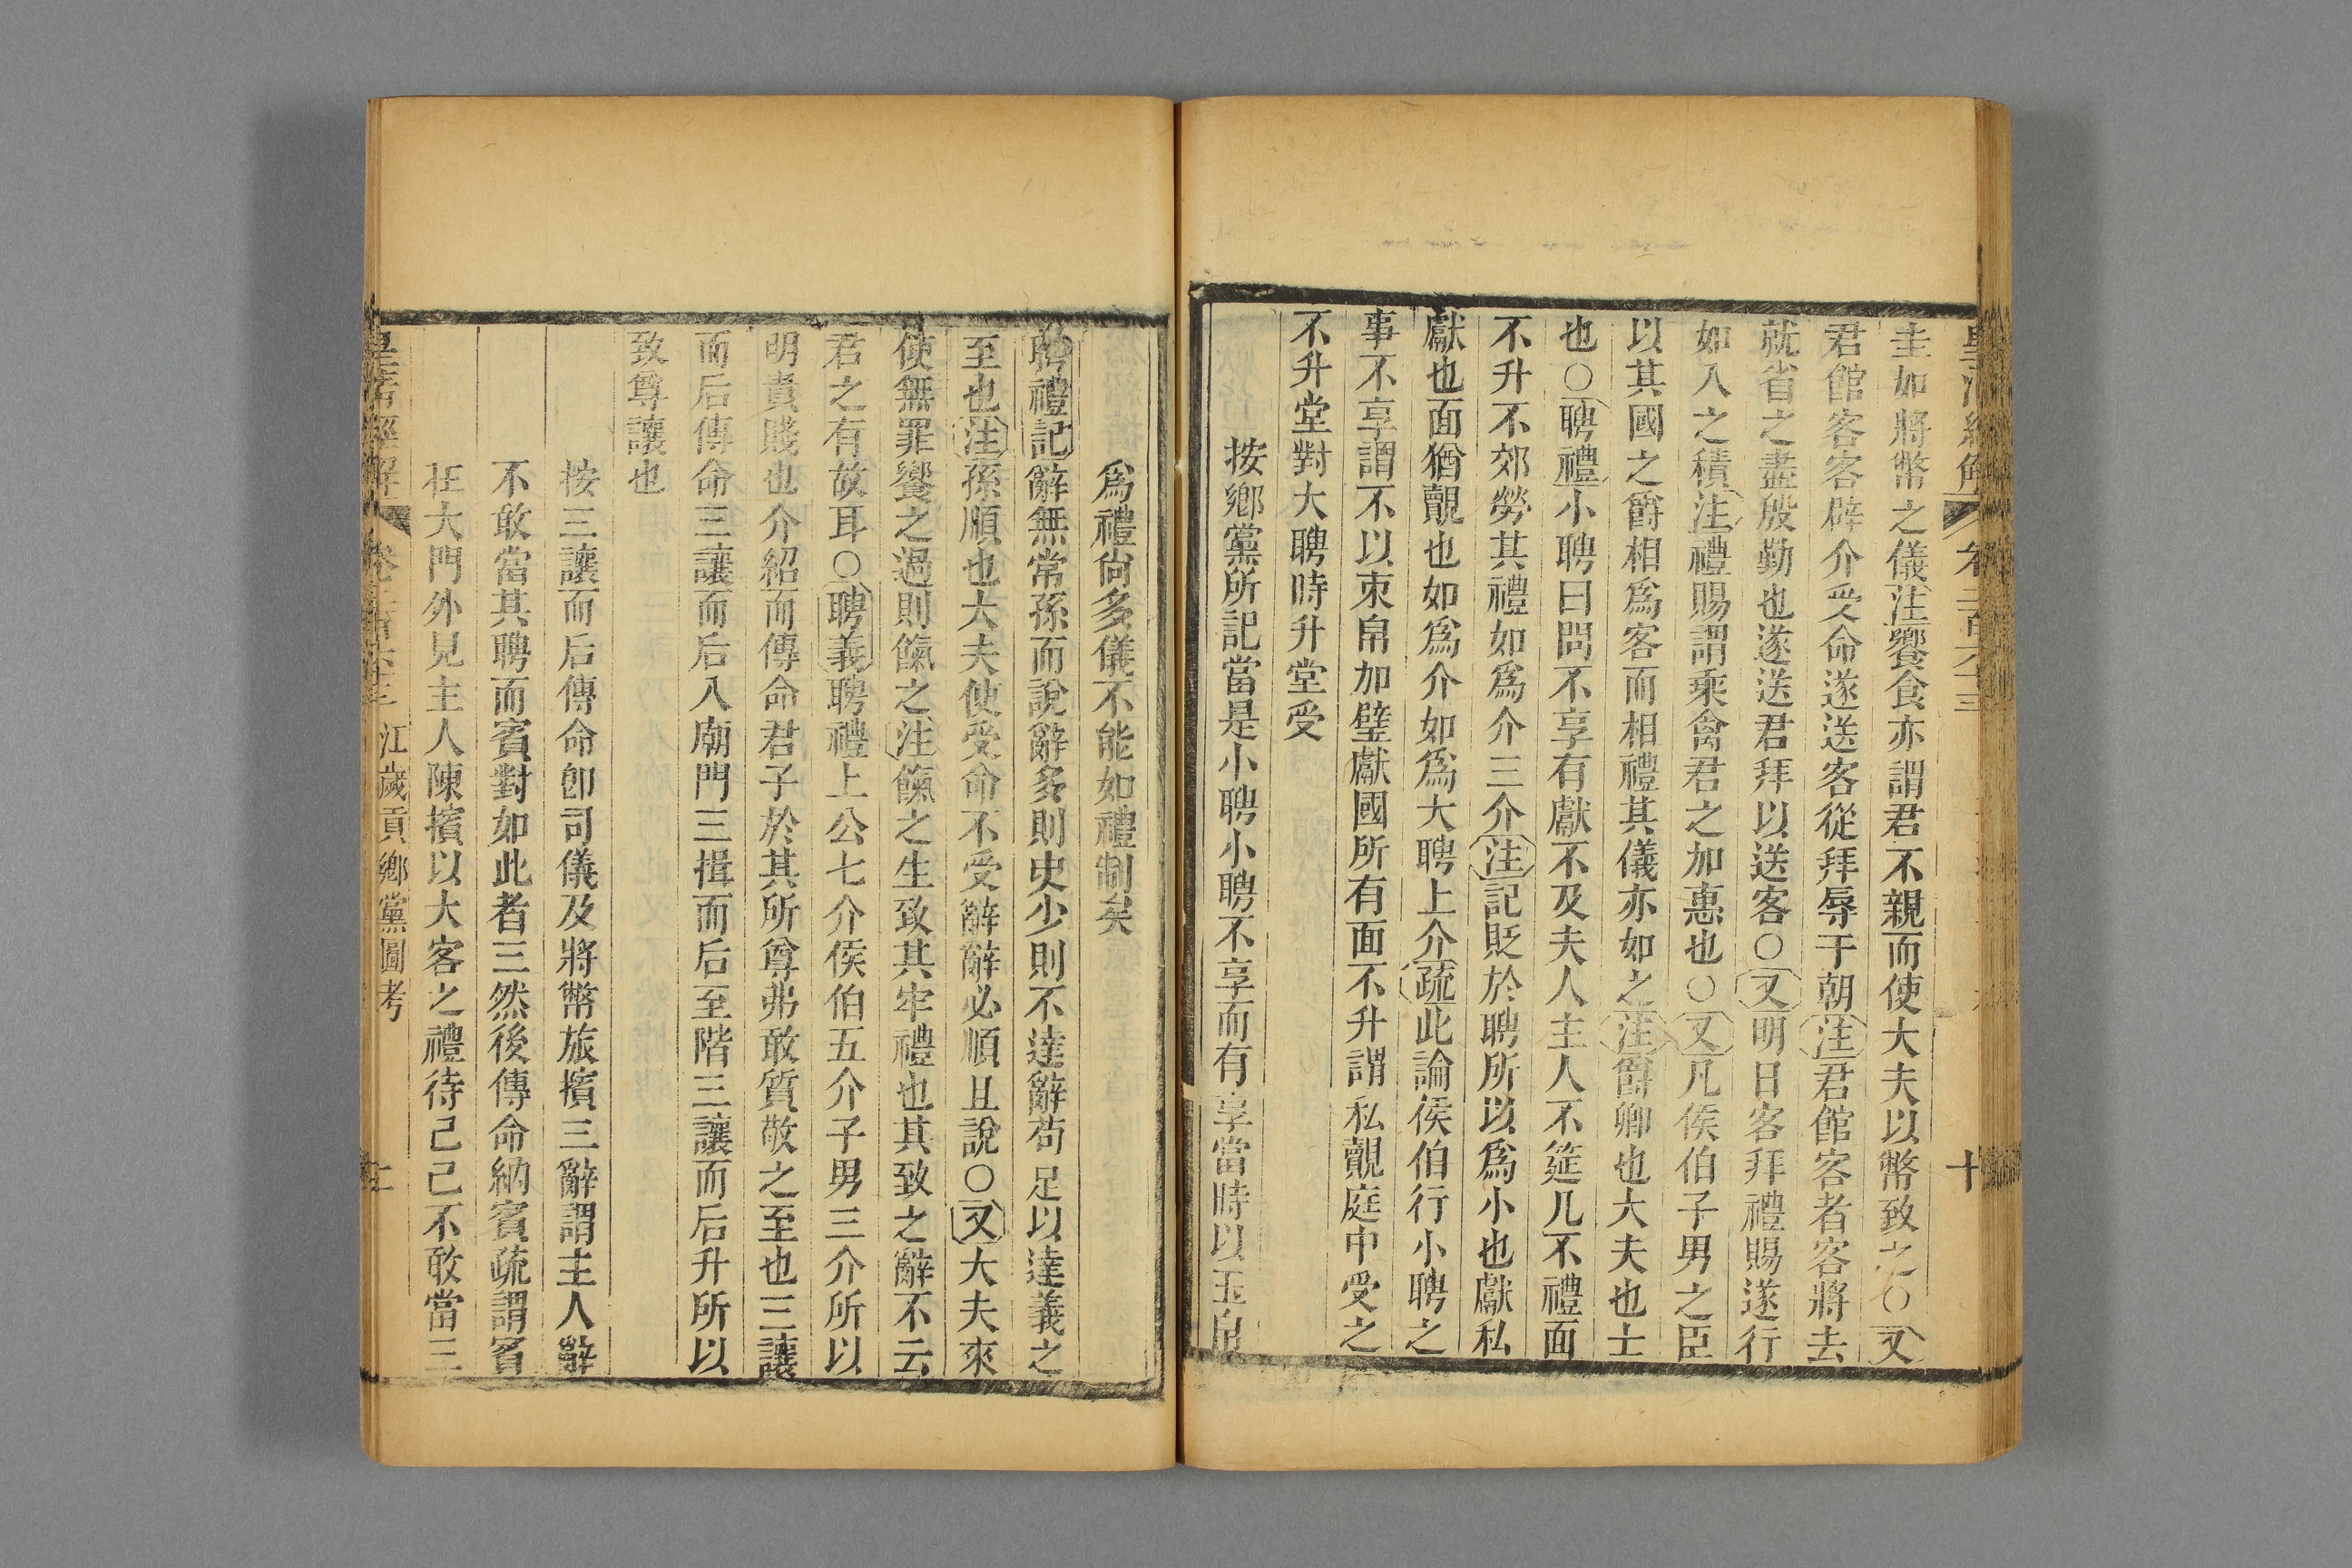 皇清經解 卷二百六十三 十
圭如將幣之儀注饗食亦謂君不親而使大夫以幣致之○又
君館客客辟介受命遂送客從拜辱于朝注君館客者客將去
就省之盡殷勤也遂送君拜以送客○又明日客拜禮賜遂行
如入之積注禮賜謂乘禽君之加惠也○又凡侯伯子男之臣
以其國之爵相爲客而相禮其儀亦如之注爵卿也大夫也士
也○聘禮小聘曰問不享有獻不及夫人主人不筵几不禮面
不升不郊勞其禮如爲介三介注記貶於聘所以爲小也獻私
獻也面猶覿也如爲介如爲大聘上介疏此論侯伯行小聘之
事不享謂不以束帛加璧獻國所有面不升謂私覿庭中受之
不升堂對大聘時升堂受
按鄉黨所記當是小聘小聘不享而有享當時以玉帛
爲禮尙多儀不能如禮制矣
聘禮記辭無常孫而說辭多則史少則不達辭苟足以達義之
至也注孫順也大夫使受命不受辭辭必順且說○又大夫來
使無罪饗之過則餼之注餼之生致其牢禮也其致之辭不云
君之有故耳○聘義聘禮上公七介侯伯五介子男三介所以
明貴賤也介紹而傳命君子於其所尊弗敢質敬之至也三讓
而后傳命三讓而后入廟門三揖而后至階三讓而后升所以
致尊讓也
按三讓而后傳命卽司儀及將幣旅擯三辭謂主人辭
不敢當其聘而賓對如此者三然後傳命納賓疏謂賓
在大門外見主人陳擯以大客之禮待己己不敢當三
皇清經解 卷二百六十三 江歲貢鄉黨圖考